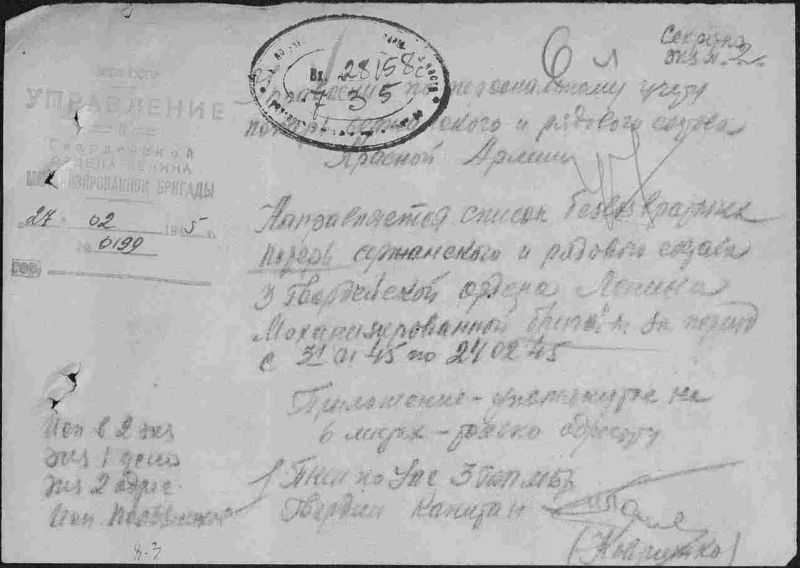 Секретно
экз № 2
6 л
Вх. 28158с
7 3 5
НКО СССР
УПРАВЛЕНИЕ
3
Гвардейской
ОРДЕНА ЛЕНИНА
МЕХАНИЗИРОВАННОЙ БРИГАДЫ
27 02 1945 г.
№ 0199
Управление по персональному учету
потерь сержанского и рядового состава
Красной Армии
Направляется список безвозвратных
потерь сержанского и рядового состава
3 Гвардейской ордена Ленина
Механизированной бригады за период
с 31 01 45 по 24 02 45
Приложение - упомянутое на
6 листах - только адресату
Исп в 2 экз
экз 1 дело
экз 2 адрес
Исп
ПНШ по 3
Гвардии Капитан
8-3